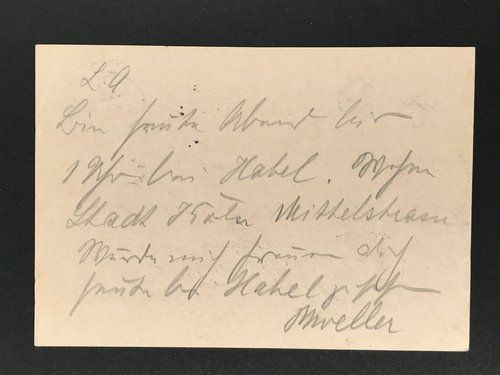 L. A
Bin heute Abend bis
1 Uhr bei Habel. Wohne
Stadt Köln Mittelstrasse
Würde mich freuen dich
heute bei Habel zu sehen
Mueller